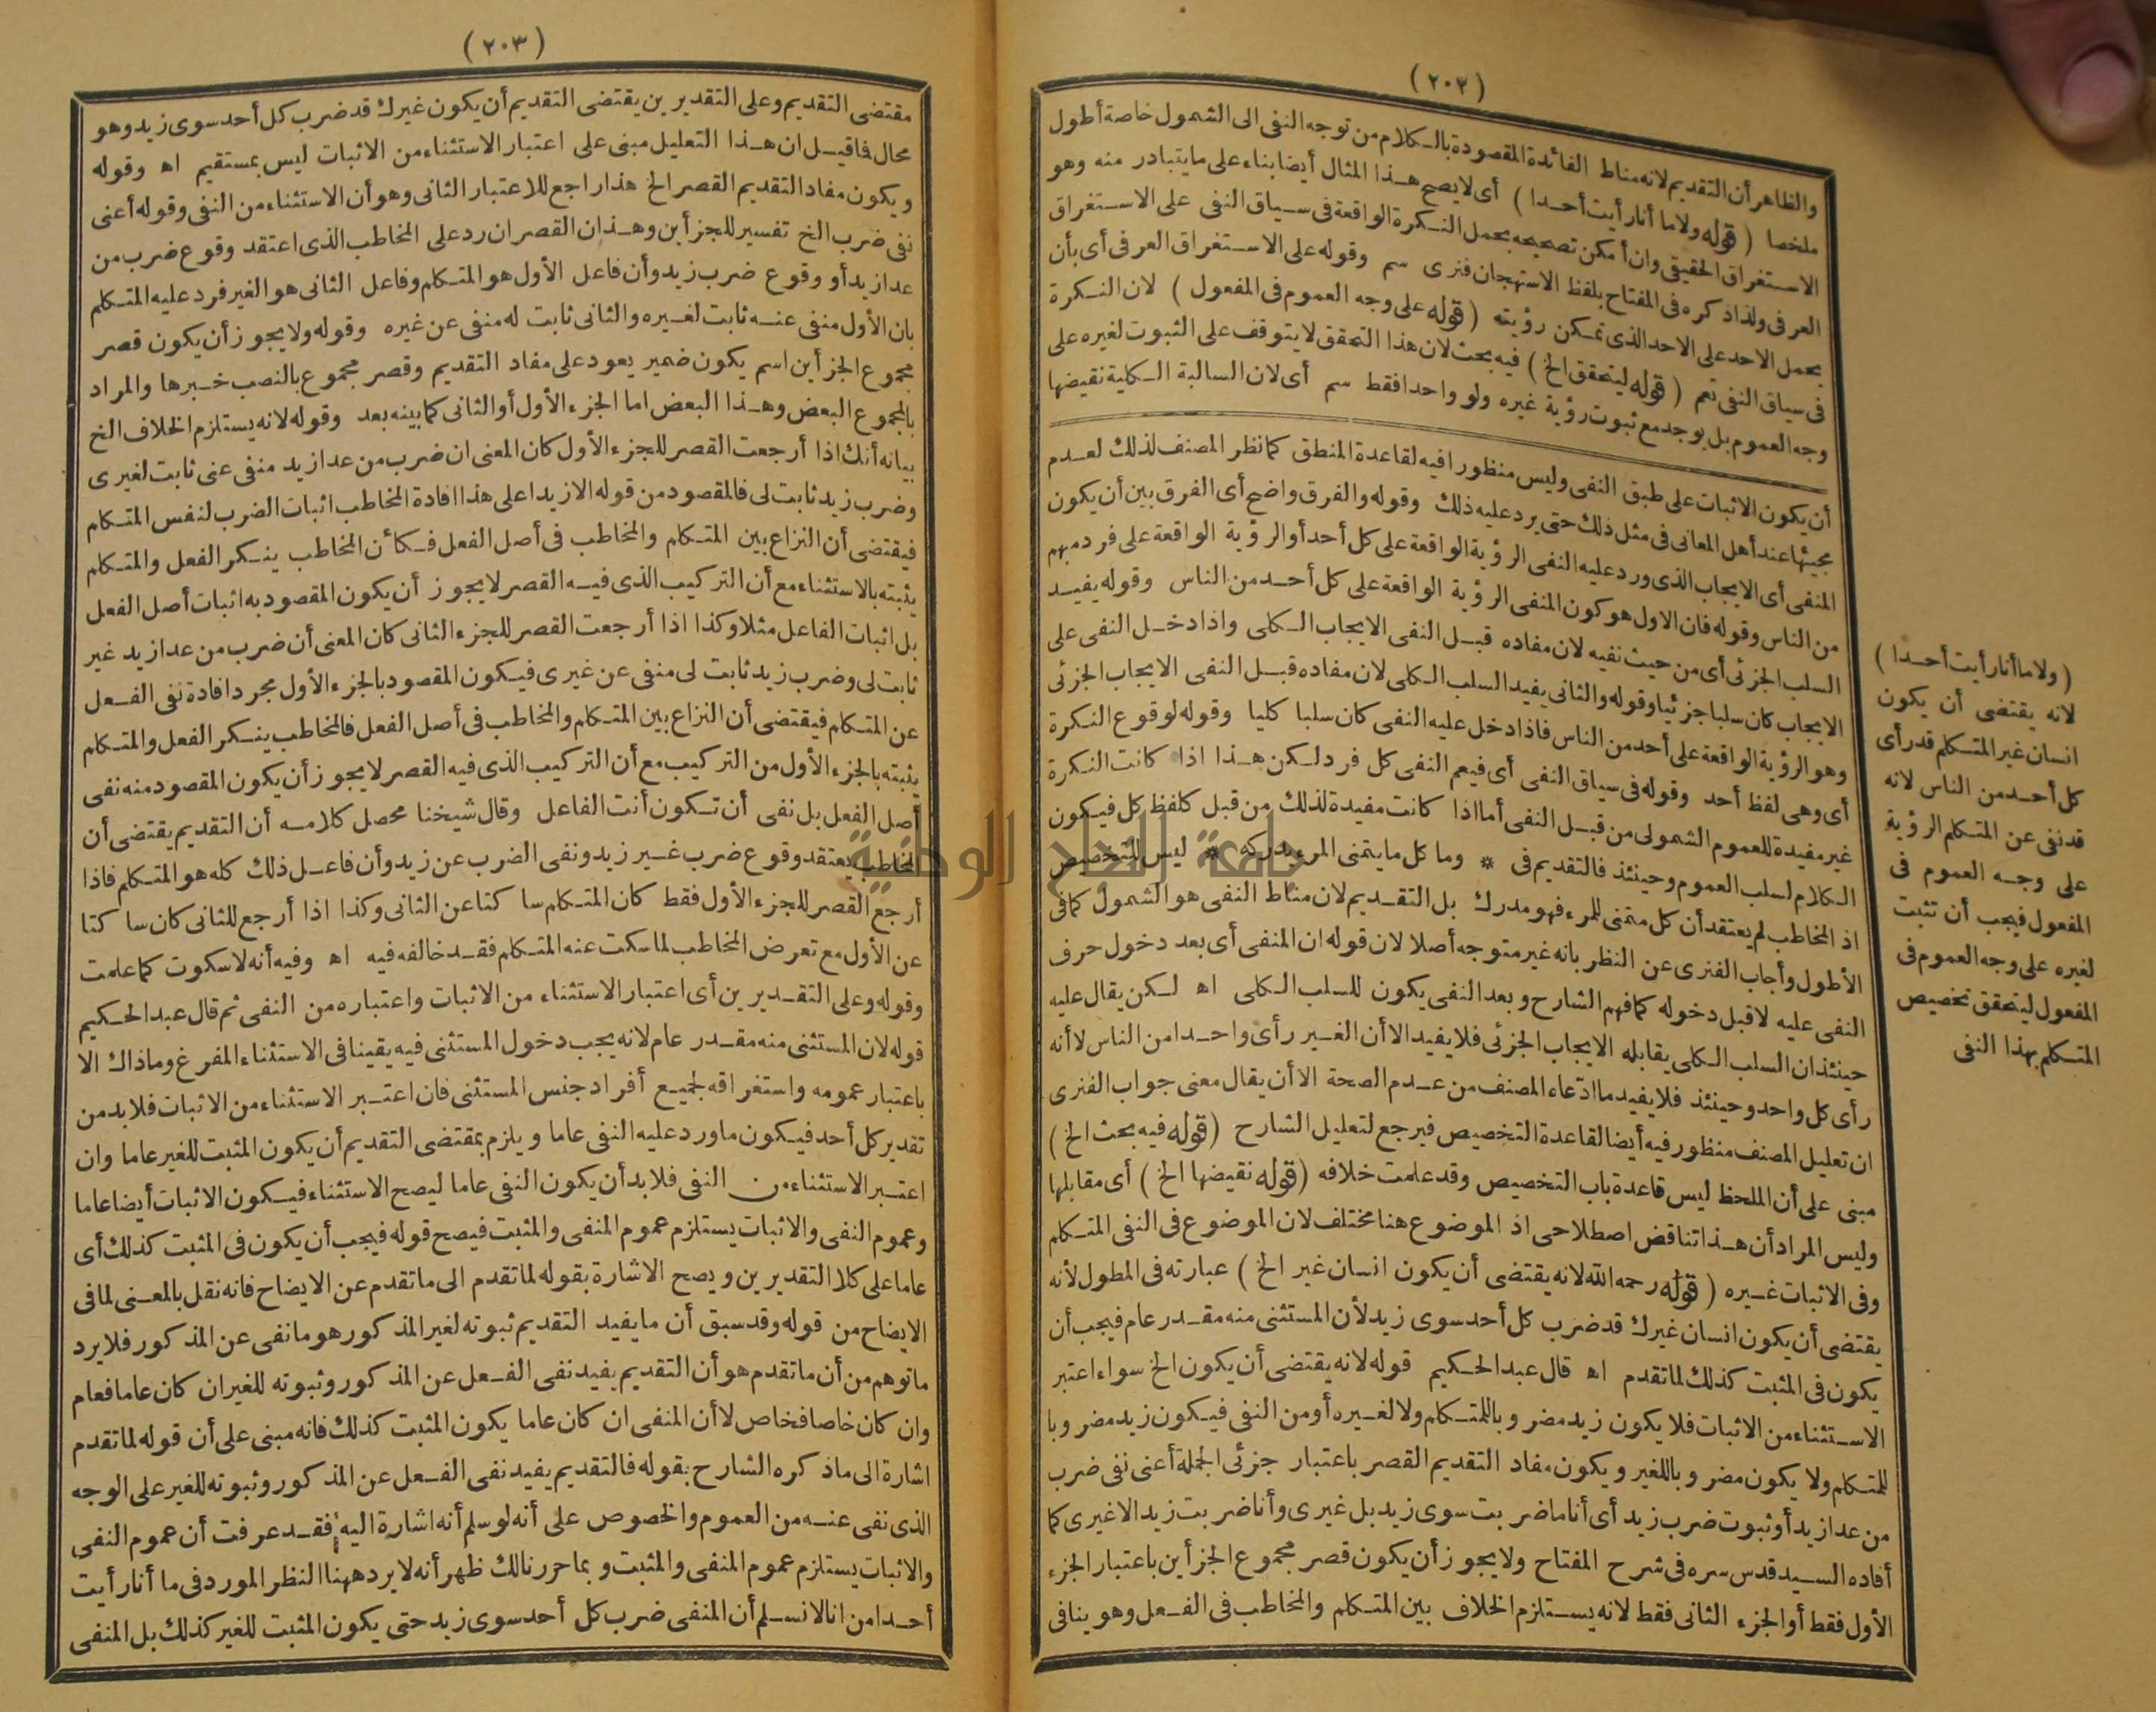 (٢٠٢)
والظاهر أن التقديم لانه مناط الفائدة المقصودة بالكلام من توجه النفى الى الشمول خاصة أطول
ملخصا (قوله ولا ما أنا رأيت أحدا) أى لا يصح هذا المثال أيضا بناء على ما يتبادر منه وهو
الاستغراق الحقيقى وان أمكن تصحيحه بحمل النكرة الواقعة فى سياق النفى على الاستغراق
العرفى ولذا ذكره فى المفتاح بلفظ الاستهجان فنرى سم وقوله على الاستغراق العرفى أى بأن
يحمل الاحد على الاحد الذى تمكن رؤيته (قوله على وجه العموم فى المفعول) لان النكرة
فى سياق النفى تعم (قوله ليتحقق الخ) فيه بحث لان هذا التحقق لا يتوقف على الثبوت لغيره على
وجه العموم بل يوجد مع ثبوت رؤية غيره ولو واحدا فقط سم أى لان السالبة الكلية نقيضها
أن يكون الاثبات على طبق النفى وليس منظورا فيه لقاعدة المنطق كما نظر المصنف لذلك لعدم
مجيئها عند أهل المعانى فى مثل ذلك حتى يرد عليه ذلك وقوله والفرق واضح أى الفرق بين أن يكون
المنفى أى الايجاب الذى ورد عليه النفى الرؤية الواقعة على كل أحد أو الرؤية الواقعة على فرد مبهم
من الناس وقوله فان الاول هو كون المنفى الرؤية الواقعة على كل أحد من الناس وقوله يفيد
السلب الجزئى أى من حيث نفيه لان مفاده قبل النفى الايجاب الكلى واذا دخل النفى على
الايجاب كان سلبا جزئيا وقوله والثانى يفيد السلب الكلى لان مفاده قبل النفى الايجاب الجزئى
وهو الرؤية الواقعة على أحد من الناس فاذا دخل عليه النفى كان سلبا كليا وقوله لوقوع النكرة
أى وهى لفظ أحد وقوله فى سياق النفى أى فيعم النفى كل فرد لكن هذا اذا كانت النكرة
غير مفيدة للعموم الشمولى من قبل النفى أما اذا كانت مفيدة لذلك من قبل كلفظ كل فيكون
الكلام لسلب العموم وحينئذ فالتقديم فى * وما كل ما يتمنى المرء يدركه * ليس للتخصيص
اذ المخاطب لم يعتقد أن كل متمنى للمرء فهو مدرك بل التقديم لان مناط النفى هو الشمول كما فى
الأطول وأجاب الفنرى عن النظر بانه غير متوجه أصلا لان قوله ان المنفى أى بعد دخول حرف
النفى عليه لا قبل دخوله كما فهم الشارح وبعد النفى يكون للسلب الكلى اه لكن يقال عليه
حينئذ ان السلب الكلى يقابله الايجاب الجزئى فلا يفيد الا أن الغير رأى واحدا من الناس لا أنه
رأى كل واحد وحينئذ فلا يفيد ما ادعاء المصنف من عدم الصحة الا أن يقال معنى جواب الفنرى
ان تعليل المصنف منظور فيه أيضا لقاعدة التخصيص فيرجع لتعليل الشارح (قوله فيه بحث الخ)
مبنى على أن الملحظ ليس قاعدة باب التخصيص وقد علمت خلافه (قوله نقيضها الخ) أى مقابلها
وليس المراد أن هذا تناقض اصطلاحى اذ الموضوع هنا مختلف لان الموضوع فى النفى المتكلم
وفى الاثبات غيره (قوله رحمه الله لانه يقتضى أن يكون انسان غير الخ) عبارته فى المطول لأنه
يقتضى أن يكون انسان غيرك قد ضرب كل أحد سوى زيد لأن المستثنى منه مقدر عام فيجب أن
يكون فى المثبت كذلك لما تقدم اه قال عبد الحكيم قوله لانه يقتضى أن يكون الخ سواء اعتبر
الاستثناء من الاثبات فلا يكون زيد مضروبا للمتكلم ولا لغيره أو من النفى فيكون زيد مضروبا
للمتكلم ولا يكون مضروبا للغير ويكون مفاد التقديم القصر باعتبار جزئى الجملة أعنى نفى ضرب
من عدا زيد أو ثبوت ضرب زيد أى أنا ما ضربت سوى زيد بل غيرى وأنا ضربت زيدا لا غيرى كما
أفاده السيد قدس سره فى شرح المفتاح ولا يجوز أن يكون قصر مجموع الجزأين باعتبار الجزء
الأول فقط أو الجزء الثانى فقط لانه يستلزم الخلاف بين المتكلم والمخاطب فى الفعل وهو ينافى
(ولا ما أنا رأيت أحدا)
لانه يقتضى أن يكون
انسان غير المتكلم قد رأى
كل أحد من الناس لانه
قد نفى عن المتكلم الرؤية
على وجه العموم فى
المفعول فيجب أن تثبت
لغيره على وجه العموم فى
المفعول ليتحقق تخصيص
المتكلم بهذا النفى
(٢٠٣)
مقتضى التقديم وعلى التقديرين يقتضى التقديم أن يكون غيرك قد ضرب كل أحد سوى زيد وهو
محال فما قيل ان هذا التعليل مبنى على اعتبار الاستثناء من الاثبات ليس بمستقيم اه وقوله
ويكون مفاد التقديم القصر الخ هذا راجع للاعتبار الثانى وهو أن الاستثناء من النفى وقوله أعنى
نفى ضرب الخ تفسير للجزأين وهذان القصران رد على المخاطب الذى اعتقد وقوع ضرب من
عدا زيد أو وقوع ضرب زيد وأن فاعل الأول هو المتكلم وفاعل الثانى هو الغير فرد عليه المتكلم
بان الأول منفى عنه ثابت لغيره والثانى ثابت له منفى عن غيره وقوله ولا يجوز أن يكون قصر
مجموع الجزأين اسم يكون ضمير يعود على مفاد التقديم وقصر مجموع بالنصب خبرها والمراد
بالمجموع البعض وهذا البعض اما الجزء الأول أو الثانى كما بينه بعد وقوله لانه يستلزم الخلاف الخ
بيانه أنك اذا أرجعت القصر للجزء الأول كان المعنى ان ضرب من عدا زيد منفى عنى ثابت لغيرى
وضرب زيد ثابت لى فالمقصود من قوله الا زيدا على هذا افادة المخاطب اثبات الضرب لنفس المتكلم
فيقتضى أن النزاع بين المتكلم والمخاطب فى أصل الفعل فكأن المخاطب ينكر الفعل والمتكلم
يثبته بالاستثناء مع أن التركيب الذى فيه القصر لا يجوز أن يكون المقصود به اثبات أصل الفعل
بل اثبات الفاعل مثلا وكذا اذا أرجعت القصر للجزء الثانى كان المعنى أن ضرب من عدا زيد غير
ثابت لى وضرب زيد ثابت لى منفى عن غيرى فيكون المقصود بالجزء الأول مجرد افادة نفى الفعل
عن المتكلم فيقتضى أن النزاع بين المتكلم والمخاطب فى أصل الفعل فالمخاطب ينكر الفعل والمتكلم
يثبته بالجزء الأول من التركيب مع أن التركيب الذى فيه القصر لا يجوز أن يكون المقصود منه نفى
أصل الفعل بل نفى أن تكون أنت الفاعل وقال شيخنا محصل كلامه أن التقديم يقتضى أن
المخاطب يعتقد وقوع ضرب غير زيد ونفى الضرب عن زيد وأن فاعل ذلك كله هو المتكلم فاذا
أرجع القصر للجزء الأول فقط كان المتكلم ساكتا عن الثانى وكذا اذا أرجع للثانى كان ساكتا
عن الأول مع تعرض المخاطب لما سكت عنه المتكلم فقد خالفه فيه اه وفيه أنه لا سكوت كما علمت
وقوله وعلى التقديرين أى اعتبار الاستثناء من الاثبات واعتباره من النفى ثم قال عبد الحكيم
قوله لان المستثنى منه مقدر عام لانه يجب دخول المستثنى فيه يقينا فى الاستثناء المفرغ وما ذاك الا
باعتبار عمومه واستغراقه لجميع أفراد جنس المستثنى فان اعتبر الاستثناء من الاثبات فلا بد من
تقدير كل أحد فيكون ما ورد عليه النفى عاما ويلزم بمقتضى التقديم أن يكون المثبت للغير عاما وان
اعتبر الاستثناء من النفى فلا بد أن يكون النفى عاما ليصح الاستثناء فيكون الاثبات أيضا عاما
وعموم النفى والاثبات يستلزم عموم المنفى والمثبت فيصح قوله فيجب أن يكون فى المثبت كذلك أى
عاما على كلا التقديرين ويصح الاشارة بقوله لما تقدم الى ما تقدم عن الايضاح فانه نقل بالمعنى لما فى
الايضاح من قوله وقد سبق أن ما يفيد التقديم ثبوته لغير المذكور هو ما نفى عن المذكور فلا يرد
ما توهم من أن ما تقدم هو أن التقديم يفيد نفى الفعل عن المذكور وثبوته للغير ان كان عاما فعام
وان كان خاصا فخاص لا أن المنفى ان كان عاما يكون المثبت كذلك فانه مبنى على أن قوله لما تقدم
اشارة الى ما ذكره الشارح بقوله فالتقديم يفيد نفى الفعل عن المذكور وثبوته للغير على الوجه
الذى نفى عنه من العموم والخصوص على أنه لو سلم أنه اشارة اليه فقد عرفت أن عموم النفى
والاثبات يستلزم عموم المنفى والمثبت وبما حررنا لك ظهر أنه لا يرد ههنا النظر المورد فى ما أنا رأيت
أحدا من انا لا نسلم أن المنفى ضرب كل أحد سوى زيد حتى يكون المثبت للغير كذلك بل المنفى
جامعة النجاح الوطنية